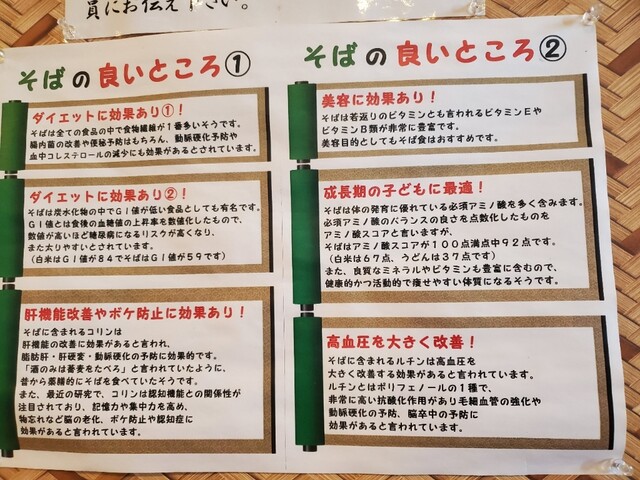 員にお伝え下さい。
そばの良いところ①
ダイエットに効果あり①！
そばは全ての食品の中で食物繊維が１番多いそうです。
腸内菌の改善や便秘予防はもちろん、動脈硬化予防や
血中コレステロールの減少にも効果があるとされています。
ダイエットに効果あり②！
そばは炭水化物の中でＧＩ値が低い食品としても有名です。
ＧＩ値とは食後の血糖値の上昇率を数値化したもので、
数値が高いほど糖尿病になるリスクが高くなり、
また太りやすいとされています。
（白米はＧＩ値が８４でそばはＧＩ値が５９です）
肝機能改善やボケ防止に効果あり！
そばに含まれるコリンは
肝機能の改善に効果があると言われ、
脂肪肝・肝硬変・動脈硬化の予防に効果的です。
「酒のみは蕎麦をたべろ」と言われていたように、
昔から薬膳的にそばを食べていたそうです。
また、最近の研究で、コリンは認知機能との関係性が
注目されており、記憶力や集中力を高め、
物忘れなど脳の老化、ボケ防止や認知症に
効果があると言われています。
そばの良いところ②
美容に効果あり！
そばは若返りのビタミンとも言われるビタミンＥや
ビタミンＢ類が非常に豊富です。
美容目的としてもそば食はおすすめです。
成長期の子どもに最適！
そばは体の発育に優れている必須アミノ酸を多く含みます。
必須アミノ酸のバランスの良さを点数化したものを
アミノ酸スコアと言いますが、
そばはアミノ酸スコアが１００点満点中９２点です。
（白米は６７点、うどんは３７点です）
また、良質なミネラルやビタミンも豊富に含むので、
健康的かつ活動的で痩せやすい体質になるそうです。
高血圧を大きく改善！
そばに含まれるルチンは高血圧を
大きく改善する効果があると言われています。
ルチンとはポリフェノールの１種で、
非常に高い抗酸化作用があり毛細血管の強化や
動脈硬化の予防、脳卒中の予防に
効果があると言われています。